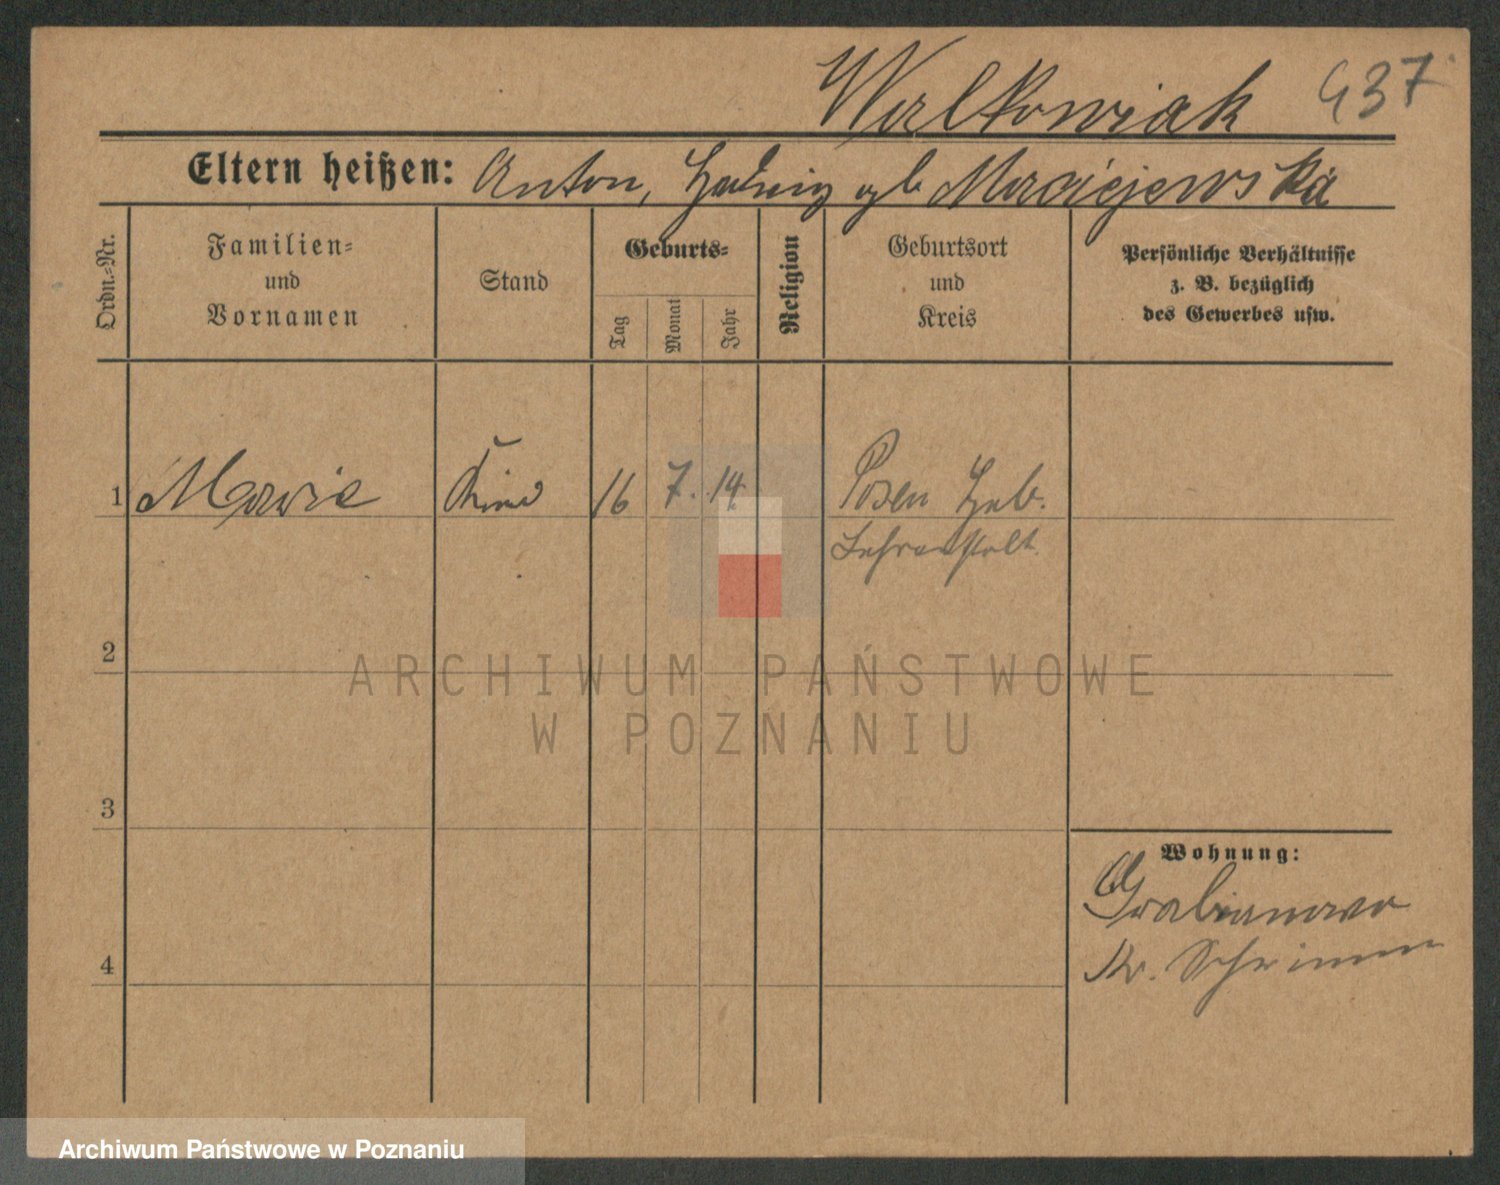 Walkowiak 437
Eltern heißen: Anton, Hedwig gb Maciejewska
Ordn.=Nr.
Familien=
und
Vornamen
Stand
Geburts=
Tag
Monat
Jahr
Religion
Geburtsort
und
Kreis
Persönliche Verhältnisse
z. B. bezüglich
des Gewerbes usw.
1 Marie Kind 16 7. 14. Posen Heb.
Lehranstalt
2
3
4
Wohnung:
Grabianowo
Kr. Schrimm
ARCHIWUM PAŃSTWOWE
W POZNANIU
Archiwum Państwowe w Poznaniu